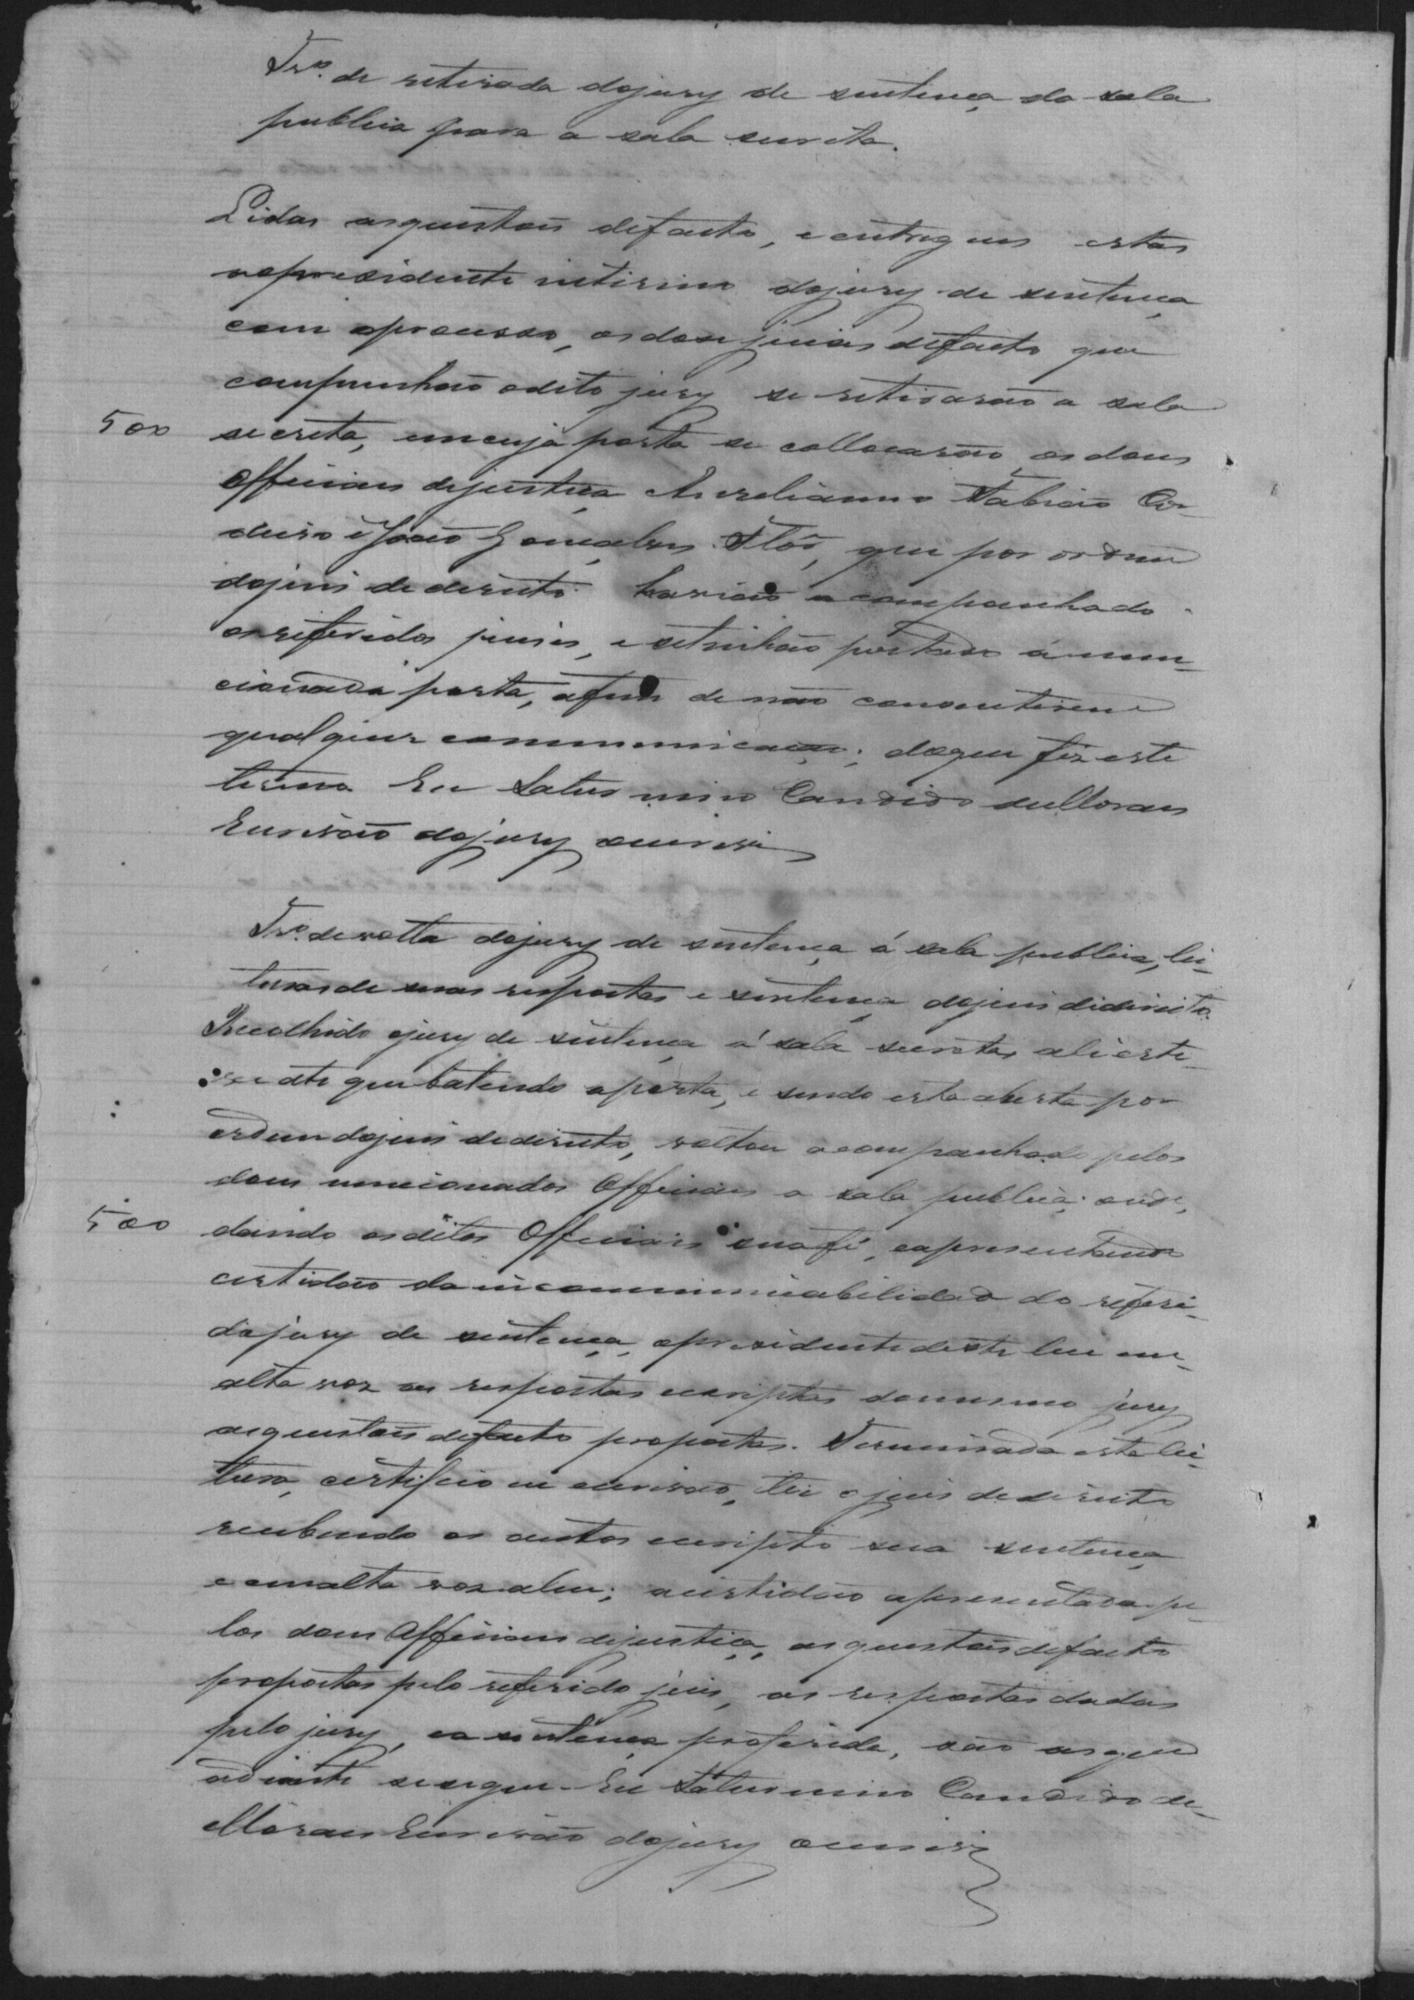 Tr.º de retirada do jury de sentença da sala
publica para a sala secreta.
Lidas as questões de facto, e entregues estas
ao presidente interino do jury de sentença
com o processo, os dose juises de facto que
compunhão o dito jury se retirarão a sala
500 secreta, em cuja porta se collocarão os dous
Officiaes de justiça Aureliano Fabricio Cor-
deiro e João Gonçalves Flôr, que por ordem
do juis de direito havião acompanhado
os referidos juises, e se tinhão postado á men-
cionada porta, afim de não consentirem
qualquer communicação; do que fiz este
termo Eu Saturnino Candido de Moraes
Escrivão do jury escrevi
Tr.º de volta do jury de sentença á sala publica, lei-
turas de suas respostas e sentença do juis de direito.
Recolhido o jury de sentença á sala secreta, ali este-
ve até que batendo a porta, e sendo esta aberta por
ordem do juis de direito, voltou acompanhado pelos
dous mencionados Officiaes a sala publica; onde,
500 dando os ditos Officiaes sua fé, e apresentando
certidão da incommunicabilidade do referi-
do jury de sentença, o presidente deste leu em
alta voz as respostas escriptas do mesmo jury
as questões de facto propostas. Terminada esta lei-
tura, certifico eu escrivão, ter o juis de direito
recebendo os autos escripto sua sentença
e em alta voz a leu; a certidão apresentada pe-
los dous Officiaes de justiça, as questões de facto
propostas pelo referido juis, as respostas dadas
pelo jury, e a sentença proferida, são as que
adiante se segue. Eu Saturnino Candido de
Moraes Escrivão do jury escrevi